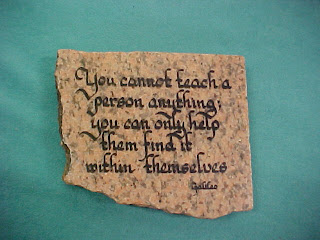 You cannot teach a
person anything;
you can only help
them find it
within themselves
Galileo